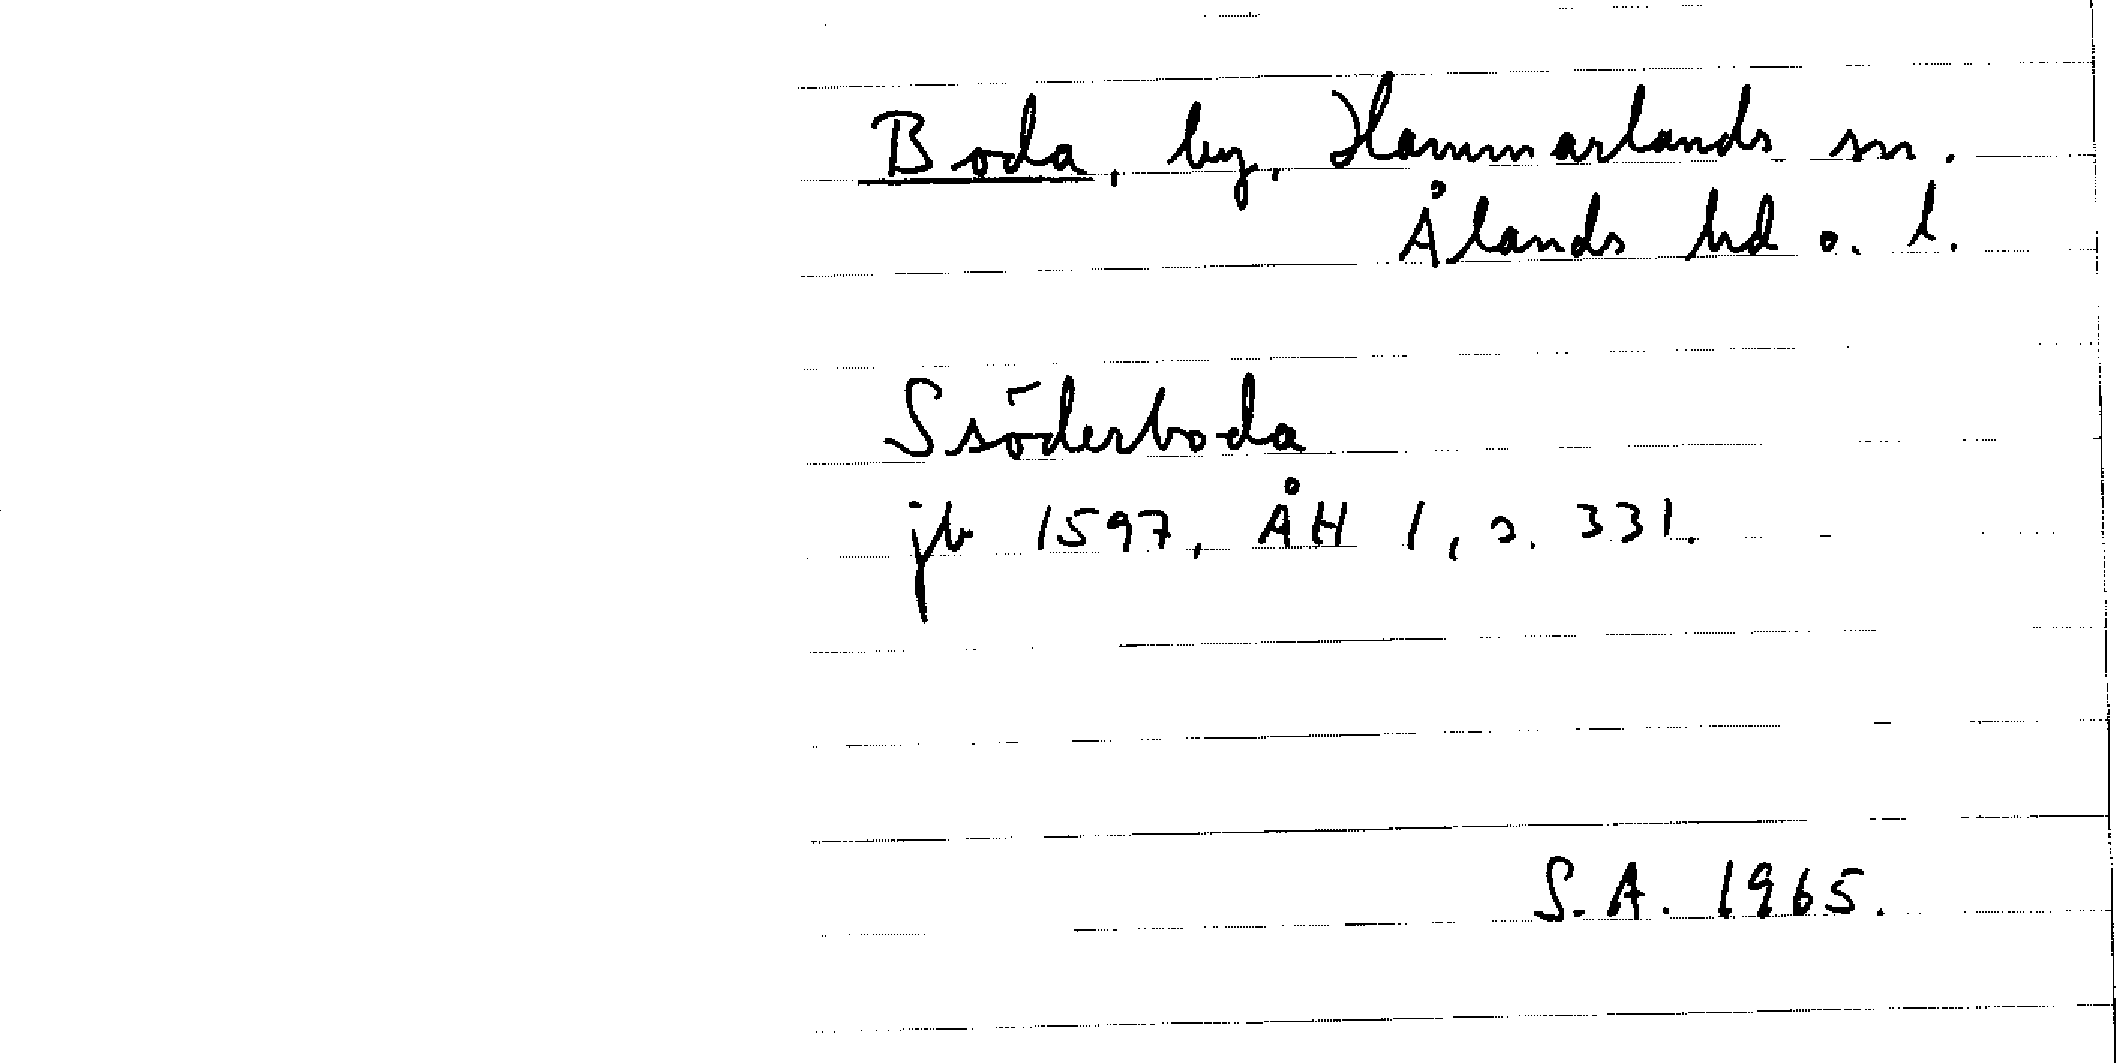 Boda, by, Hammarlands sn.
Ålands hd o. l.
Ssöderboda
jb 1597, ÅH 1, s. 331.
S.A. 1965.